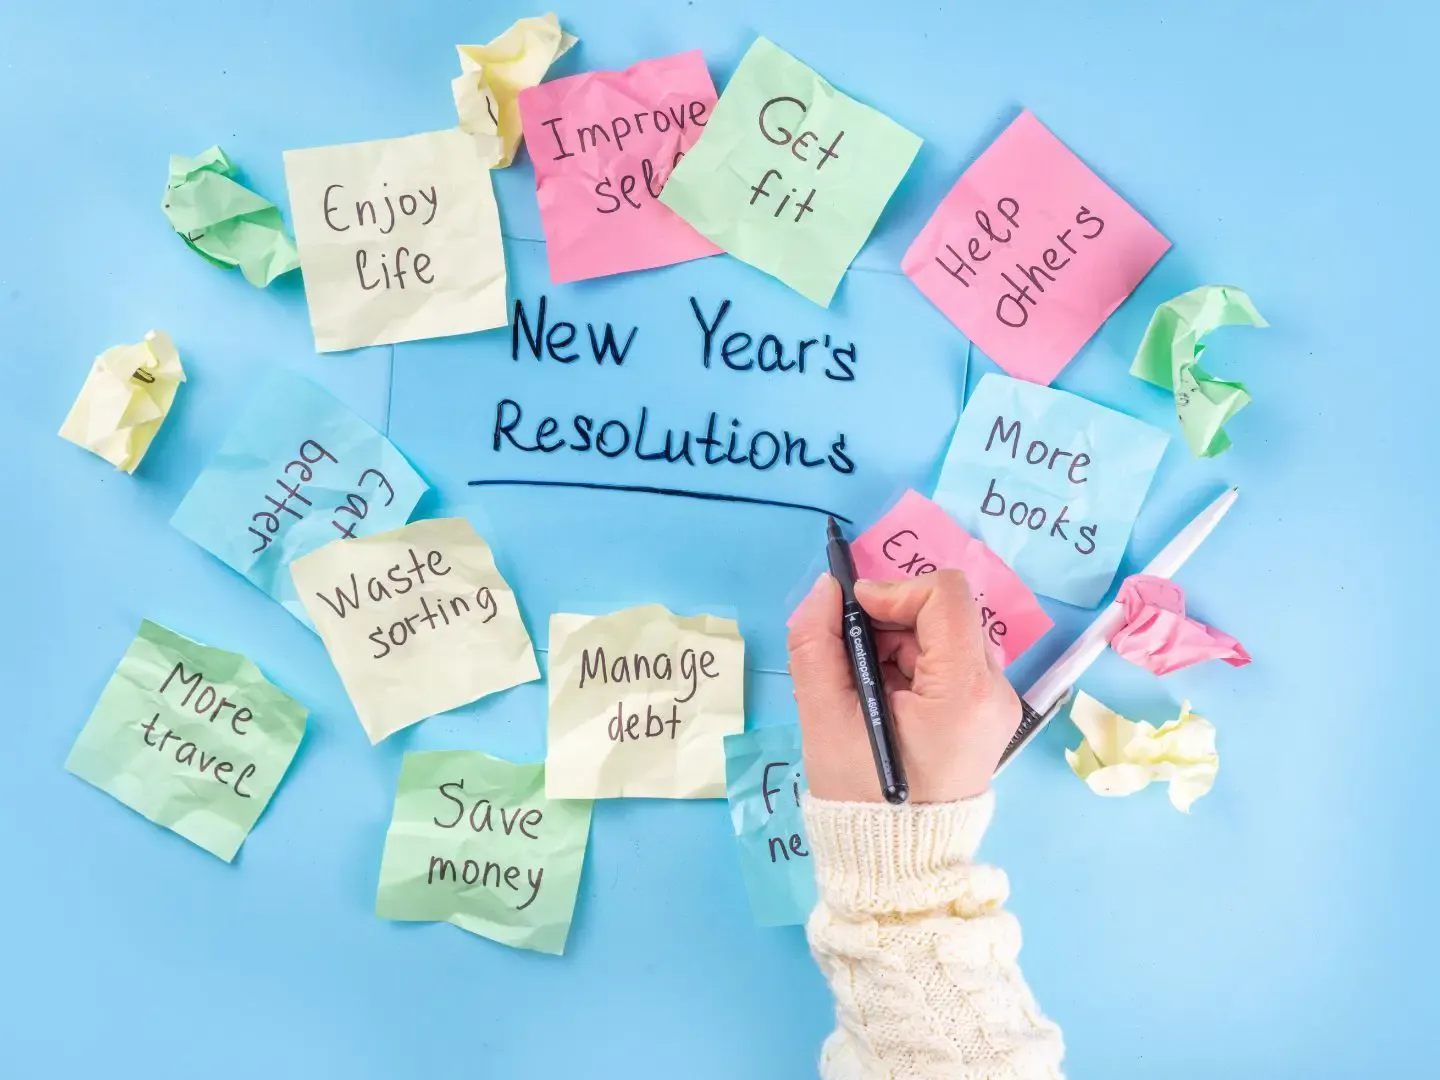 Improve
self
Get
fit
Enjoy
life
Help
others
New Year's
Resolutions
More
books
Eat
better
Waste
sorting
Manage
debt
More
travel
Save
money
centropen
4606 M